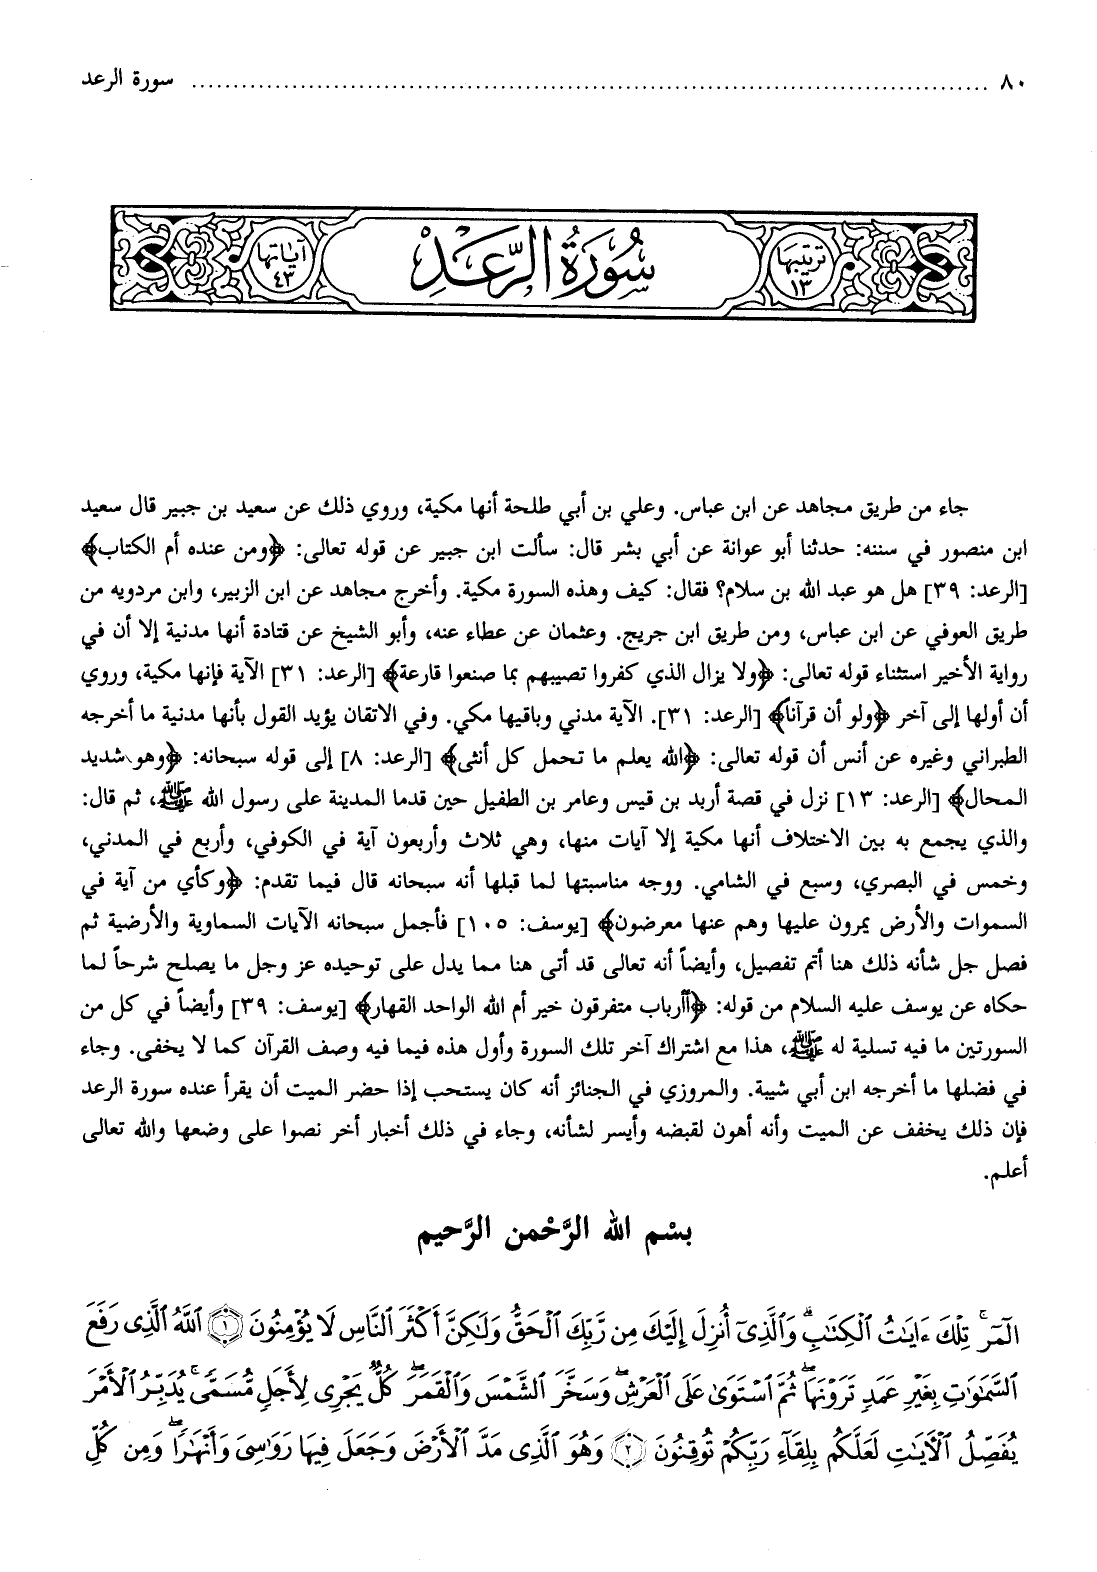 ٨٠ ........ سورة الرعد
ترتيبها ١٣ سُورَةُ الرَّعْدِ آياتها ٤٣
جاء من طريق مجاهد عن ابن عباس. وعلي بن أبي طلحة أنها مكية، وروي ذلك عن سعيد بن جبير قال سعيد
ابن منصور في سننه: حدثنا أبو عوانة عن أبي بشر قال: سألت ابن جبير عن قوله تعالى: ﴿ومن عنده أم الكتاب﴾
[الرعد: ٣٩] هل هو عبد الله بن سلام؟ فقال: كيف وهذه السورة مكية. وأخرج مجاهد عن ابن الزبير، وابن مردويه من
طريق العوفي عن ابن عباس، ومن طريق ابن جريج. وعثمان عن عطاء عنه، وأبو الشيخ عن قتادة أنها مدنية إلا أن في
رواية الأخير استثناء قوله تعالى: ﴿ولا يزال الذي كفروا تصيبهم بما صنعوا قارعة﴾ [الرعد: ٣١] الآية فإنها مكية، وروي
أن أولها إلى آخر ﴿ولو أن قرآنا﴾ [الرعد: ٣١]. الآية مدني وباقيها مكي. وفي الاتقان يؤيد القول بأنها مدنية ما أخرجه
الطبراني وغيره عن أنس أن قوله تعالى: ﴿الله يعلم ما تحمل كل أنثى﴾ [الرعد: ٨] إلى قوله سبحانه: ﴿وهو شديد
المحال﴾ [الرعد: ١٣] نزل في قصة أربد بن قيس وعامر بن الطفيل حين قدما المدينة على رسول الله ﷺ، ثم قال:
والذي يجمع به بين الاختلاف أنها مكية إلا آيات منها، وهي ثلاث وأربعون آية في الكوفي، وأربع في المدني،
وخمس في البصري، وسبع في الشامي. ووجه مناسبتها لما قبلها أنه سبحانه قال فيما تقدم: ﴿وكأي من آية في
السموات والأرض يمرون عليها وهم عنها معرضون﴾ [يوسف: ١٠٥] فأجمل سبحانه الآيات السماوية والأرضية ثم
فصل جل شأنه ذلك هنا أتم تفصيل، وأيضاً أنه تعالى قد أتى هنا مما يدل على توحيده عز وجل ما يصلح شرحاً لما
حكاه عن يوسف عليه السلام من قوله: ﴿أأرباب متفرقون خير أم الله الواحد القهار﴾ [يوسف: ٣٩] وأيضاً في كل من
السورتين ما فيه تسلية له ﷺ، هذا مع اشتراك آخر تلك السورة وأول هذه فيما فيه وصف القرآن كما لا يخفى. وجاء
في فضلها ما أخرجه ابن أبي شيبة. والمروزي في الجنائز أنه كان يستحب إذا حضر الميت أن يقرأ عنده سورة الرعد
فإن ذلك يخفف عن الميت وأنه أهون لقبضه وأيسر لشأنه، وجاء في ذلك أخبار أخر نصوا على وضعها والله تعالى
أعلم.
بسْم الله الرَّحْمن الرَّحيم
الٓمٓرۚ تِلْكَ ءَايَٰتُ ٱلْكِتَٰبِۗ وَٱلَّذِىٓ أُنزِلَ إِلَيْكَ مِن رَّبِّكَ ٱلْحَقُّ وَلَٰكِنَّ أَكْثَرَ ٱلنَّاسِ لَا يُؤْمِنُونَ ۝١ ٱللَّهُ ٱلَّذِى رَفَعَ
ٱلسَّمَٰوَٰتِ بِغَيْرِ عَمَدٍ تَرَوْنَهَاۖ ثُمَّ ٱسْتَوَىٰ عَلَى ٱلْعَرْشِۖ وَسَخَّرَ ٱلشَّمْسَ وَٱلْقَمَرَۖ كُلٌّ يَجْرِى لِأَجَلٍ مُّسَمًّىۚ يُدَبِّرُ ٱلْأَمْرَ
يُفَصِّلُ ٱلْءَايَٰتِ لَعَلَّكُم بِلِقَآءِ رَبِّكُمْ تُوقِنُونَ ۝٢ وَهُوَ ٱلَّذِى مَدَّ ٱلْأَرْضَ وَجَعَلَ فِيهَا رَوَٰسِىَ وَأَنْهَٰرًاۖ وَمِن كُلِّ